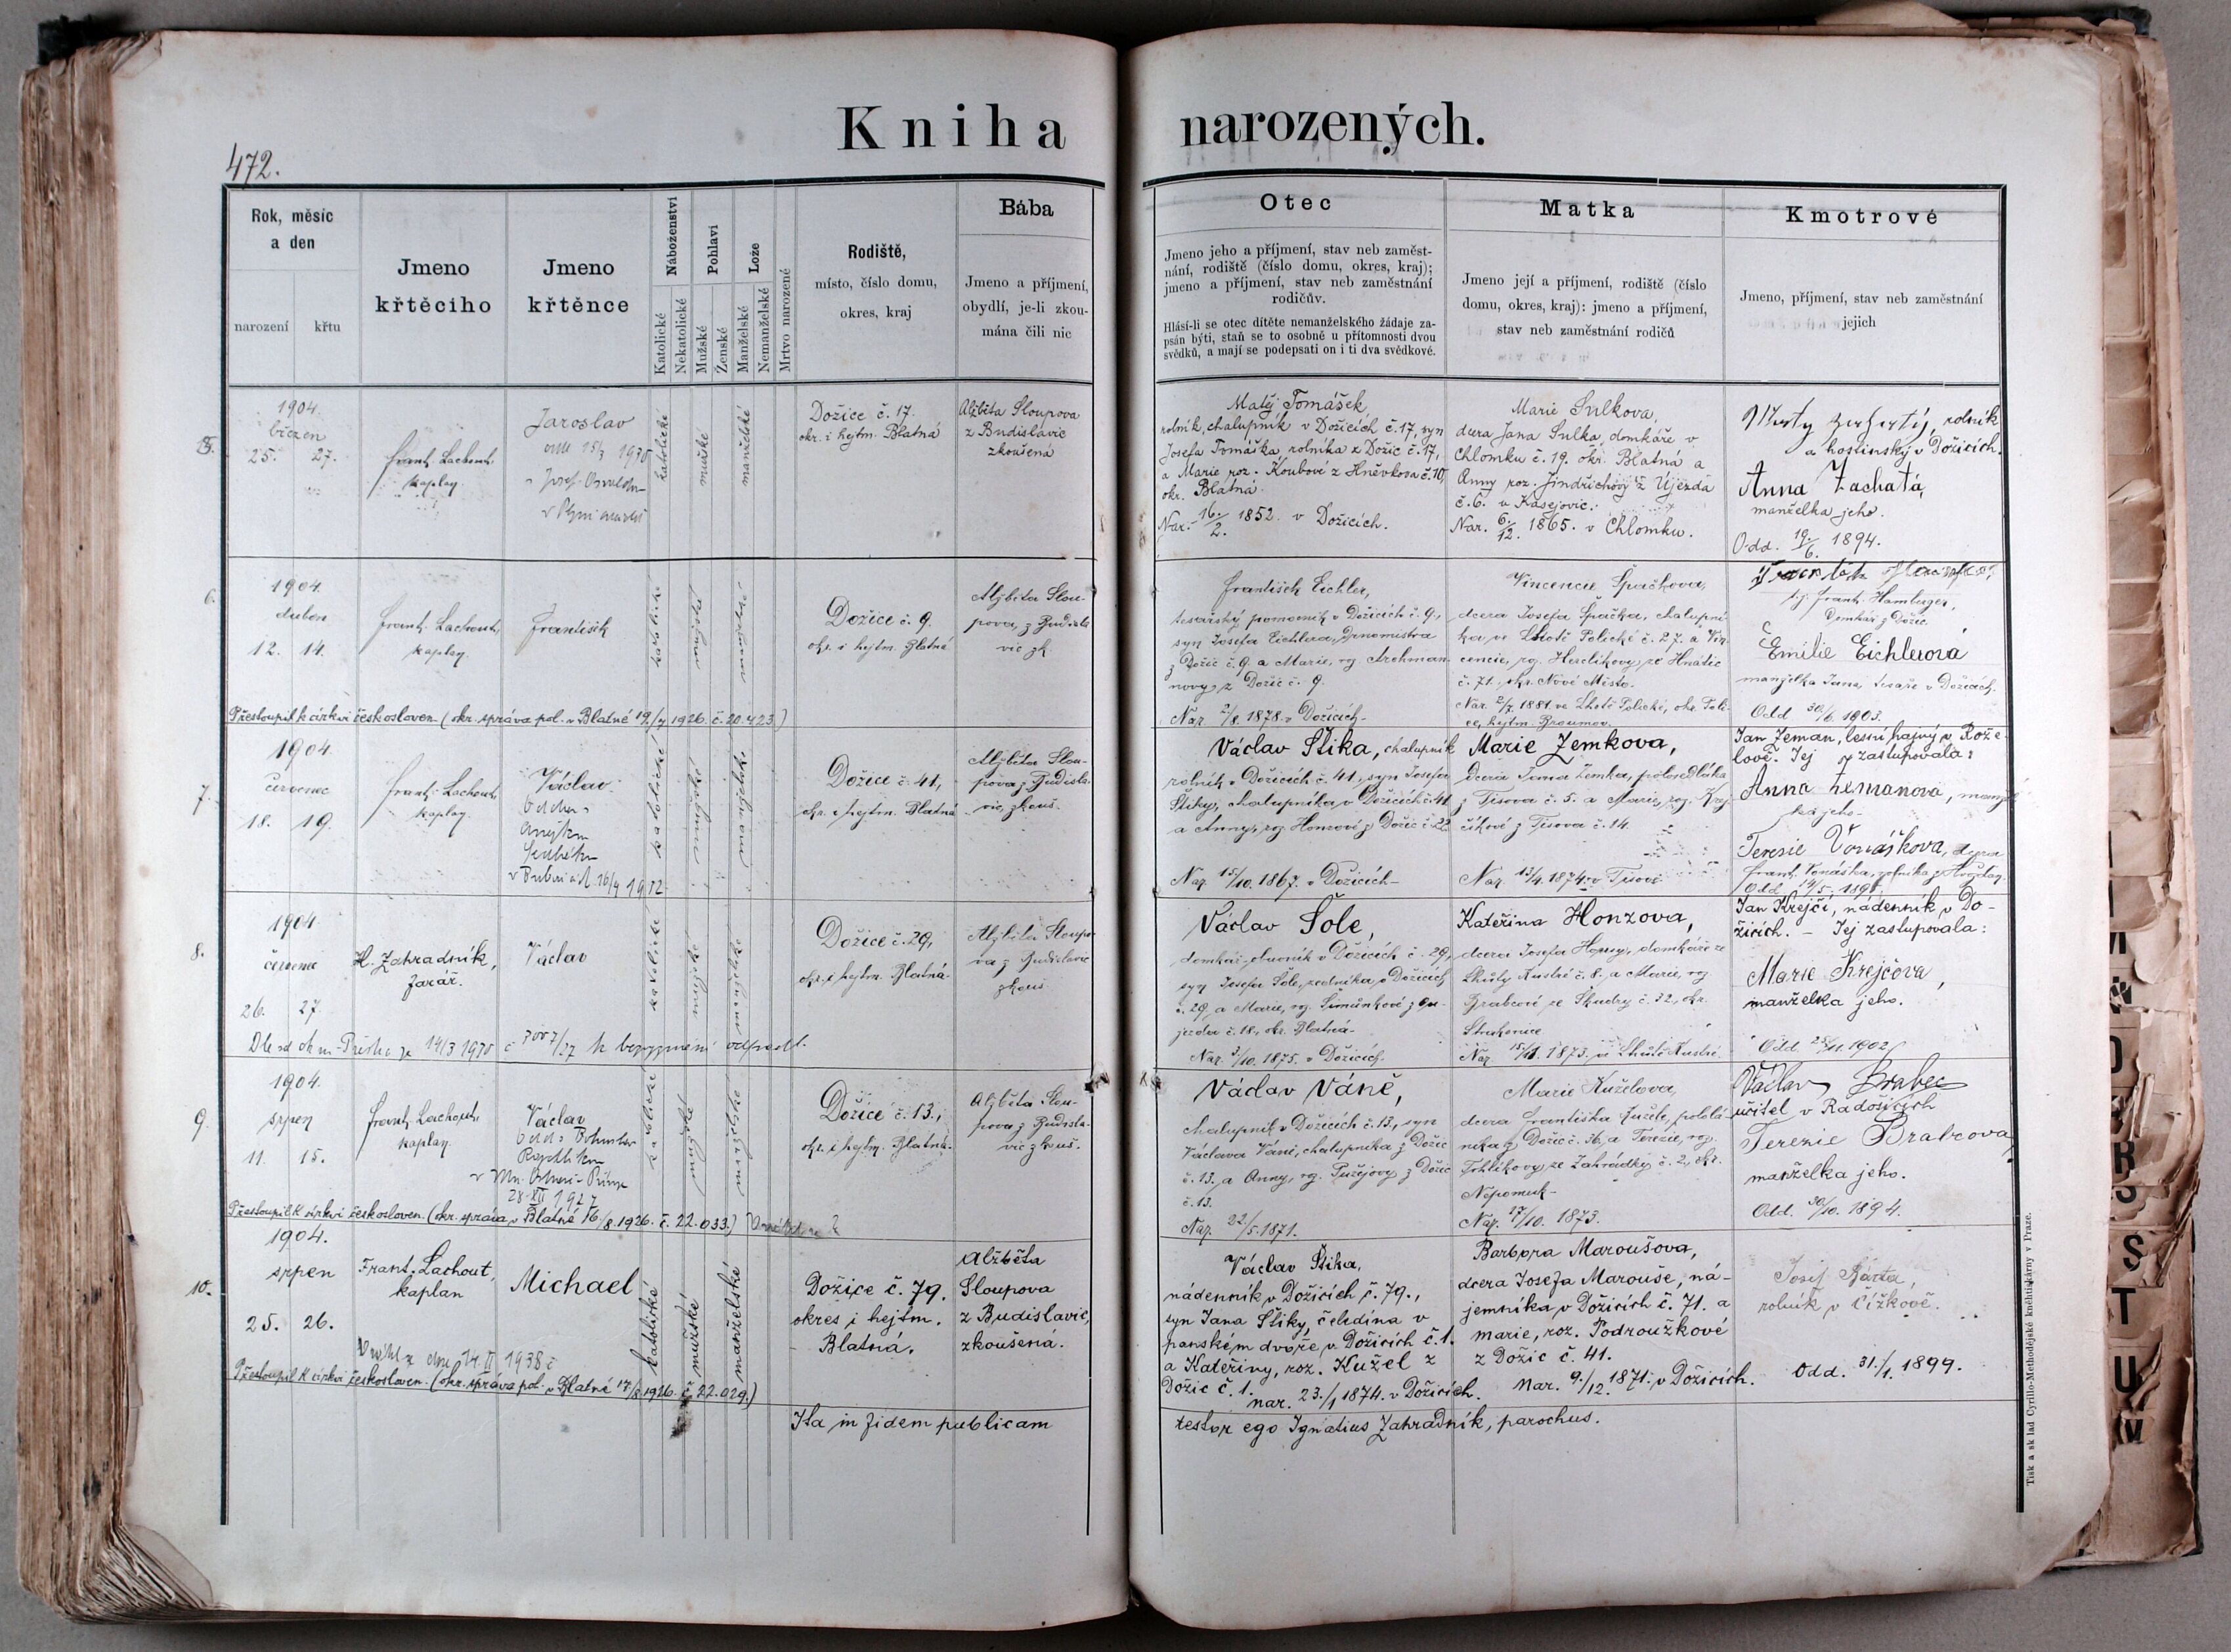 Kniha narozených.
472.
Rok, měsíc
a den
narození
křtu
Jmeno
křtěcího
Jmeno
křtěnce
Náboženství
Katolické
Nekatolické
Pohlaví
Mužské
Ženské
Lože
Manželské
Nemanželské
Mrtvo narozené
Rodiště,
místo, číslo domu,
okres, kraj
Bába
Jmeno a příjmení,
obydlí, je-li zkou-
mána čili nic
Otec
Jmeno jeho a příjmení, stav neb zaměst-
nání, rodiště (číslo domu, okres, kraj);
jmeno a příjmení, stav neb zaměstnání
rodičův.
Hlásí-li se otec dítěte nemanželského žádaje za-
psán býti, staň se to osobně u přítomnosti dvou
svědků, a mají se podepsati on i ti dva svědkové.
Matka
Jmeno její a příjmení, rodiště (číslo
domu, okres, kraj): jmeno a příjmení,
stav neb zaměstnání rodičů
Kmotrové
Jmeno, příjmení, stav neb zaměstnání
jejich
5.
1904.
březen
25. 27.
Frant. Lachout,
kaplan.
Jaroslav
katolické
mužské
manželské
Dožice č. 17.
okr. i hejtm. Blatná
Alžběta Sloupova
z Budislavic
zkoušená
Matěj Tomášek
rolník, chalupník v Dožicích č. 17, syn
Josefa Tomáška, rolníka z Dožic č. 17,
a Marie roz. Koubové z Hněvkova č. 10,
okr. Blatná.
Nar. 16./2. 1852. v Dožicích.
Marie Sulkova,
dcera Jana Sulka, domkáře v
Chlomku č. 19. okr. Blatná a
Anny roz. Jindřichovy z Újezda
č. 6. u Kasejovic.
Nar. 6./12. 1865. v Chlomku.
rolník
a hostinský v Dožicích.
Anna Zachatá,
manželka jeho.
Odd. 19./6. 1894.
6.
1904.
duben
12. 14.
Frant. Lachout,
kaplan.
František
katolické
mužské
manželské
Dožice č. 9.
okr. i hejtm. Blatná
Alžběta Slou-
pova, z Budisla-
vic zk.
František Eichler,
tesařský pomocník v Dožicích č. 9.,
syn Josefa Eichlera,
z Dožic č. 9. a Marie, roz.
novy, z Dožic č. 9.
Nar. 2/8. 1878. v Dožicích.
Vincencie Špačkova,
dcera Josefa Špačka, chalupní-
ka ve Lhotě Polické č. 27. a Vin-
cencie, roz. ze Hnátic
č. 71., okr. Nové Město.
Nar. 2/7. 1881. ve Lhotě Polické, okr. Poli-
ce, hejtm. Broumov.
tj. Frant. Hamburger,
domkář z Dožic
Emilie Eichlerová
manželka Jana, tesaře v Dožicích.
Odd. 30/6. 1903.
Přestoupil k církvi českosloven. (okr. správa pol. v Blatné 19./7 1926. č. 20.423)
7.
1904.
červenec
18. 19.
Frant. Lachout,
kaplan.
Václav.
katolické
mužské
manželské
Dožice č. 41,
okr. i hejtm. Blatná
Alžběta Slou-
pova z Budisla-
vic, zkouš.
Václav Štika, chalupník
rolník v Dožicích č. 41., syn Josefa
Štiky, chalupníka v Dožicích č. 41
a Anny, roz. Honzové z Dožic č. 22
Nar. 15/10. 1867. v Dožicích.
Marie Zemkova,
dcera Toma Zemka, polosedláka
z Tisova č. 5. a Marie, roz. Krej-
číkové z Tisova č. 14.
Nar. 13/4. 1874. v Tisově
Jan Zeman, lesní hajný v Rože-
lově. Jej zastupovala:
Anna Zemanová, manžel-
ka jeho.
Terezie Vonáškova, dcera
Frant. Vonáška, rolníka z
Odd. 14/5. 1895.
8.
1904.
červenec
26. 27.
H. Zahradník,
farář.
Václav
katolické
mužské
manželské
Dožice č. 29,
okr. i hejtm. Blatná.
Alžběta Sloupo-
va z Budislavic
zkouš.
Václav Šole,
domkář, obuvník v Dožicích č. 29,
syn Josefa Šole, v Dožicích
č. 29, a Marie, roz. Šimůnkové z Ou-
jezda č. 18., okr. Blatná.
Nar. 3/10. 1875. v Dožicích.
Kateřina Honzova,
dcera Josefa Honzy, domkáře ze
Lhoty č. 8. a Marie, roz.
Brabcové ze Škudry č. 32., okr.
Strakonice
Nar. 15/11. 1873.
Jan Krejčí, nádenník v Do-
žicích. - Jej zastupovala:
Marie Krejčova,
manželka jeho.
Odd. 25/11. 1902.
14/3 1930 k bezvyznání odpadl.
9.
1904.
srpen
11. 15.
Frant. Lachout,
kaplan.
Václav
28. XII 1927
katolické
mužské
manželské
Dožice č. 13.,
okr. i hejtm. Blatná.
Alžběta Slou-
pova z Budisla-
vic zkouš.
Václav Váně,
chalupník v Dožicích č. 13., syn
Václava Váně, chalupníka z Dožic
č. 13. a Anny, roz. z Dožic
č. 13.
Nar. 22/5. 1871.
Marie Kuželova,
dcera Františka Kužele,
z Dožic č. 36, a Terezie, roz.
Trhlíkovy, ze Zahrádky č. 2., okr.
Nepomuk.
Nar. 17/10. 1873.
Václav Brabec
učitel v Radošicích
Terezie Brabcova,
manželka jeho.
Odd. 30/10. 1894.
Přestoupil k církvi českosloven. (okr. správa v Blatné 16./8. 1926. č. 22.033.)
10.
1904.
srpen
25. 26.
Frant. Lachout,
kaplan
Michael
katolické
mužské
manželské
Dožice č. 79.
okres i hejtm.
Blatná.
Alžběta
Sloupova
z Budislavic,
zkoušená.
Václav Štika,
nádenník v Dožicích č. 79.,
syn Jana Štiky, čeledína v
panském dvoře v Dožicích č. 1.
a Kateřiny, roz. Kužel z
Dožic č. 1.
nar. 23./1 1874. v Dožicích.
Barbora Maroušova,
dcera Josefa Marouše, ná-
jemníka v Dožicích č. 71. a
marie, roz. Podroužkové
z Dožic č. 41.
Nar. 9./12. 1871. v Dožicích.
Josef Bárta,
rolník v Čížkově.
Odd. 31./1. 1899.
dne 14. II 1938
Přestoupil k církvi českosloven. (okr. správa pol. v Blatné 17/8 1926. č. 22.029.)
Ita in fidem publicam testor ego Ignatius Zahradník, parochus.
Tisk a sklad Cyrillo-Methodějské knihtiskárny v Praze.
S
T
U